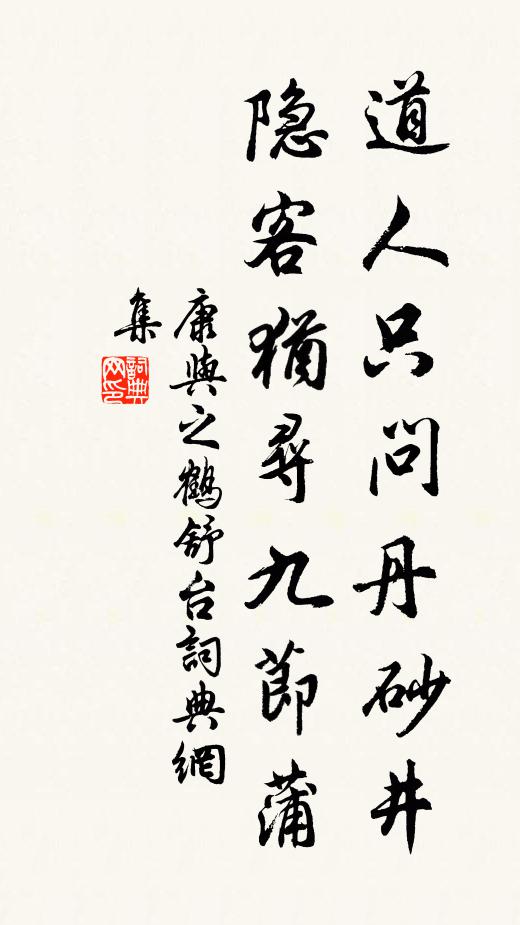 道人只问丹砂井
隐客猶尋九節蒲
康與之鶴舒台詞典網
集
詞典网印